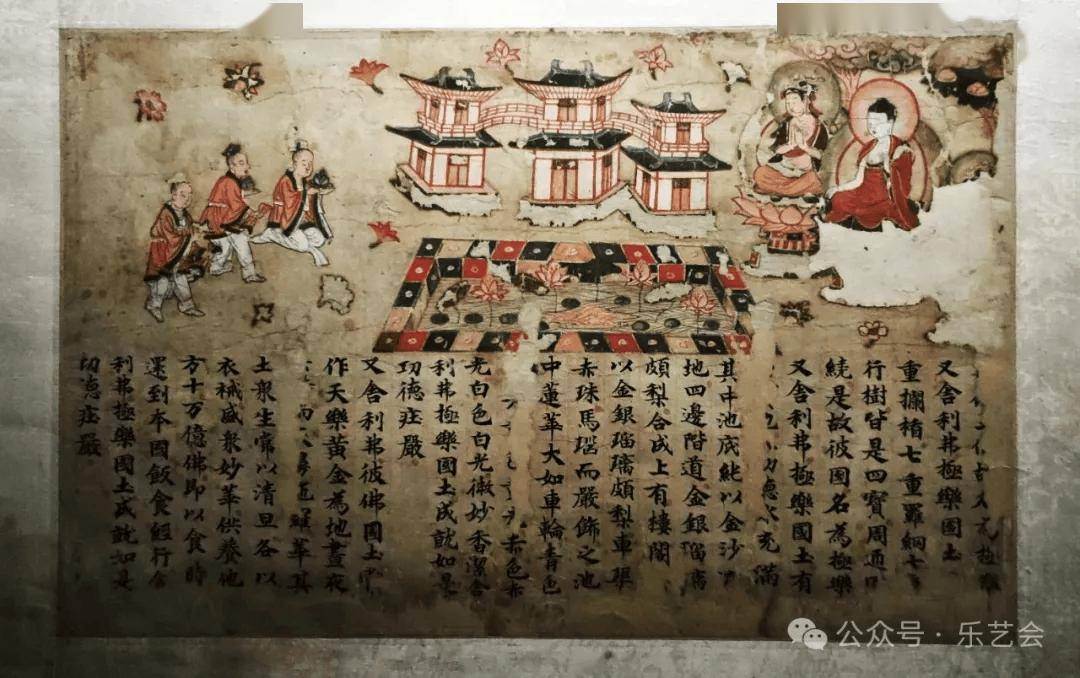 極樂
又舍利弗極樂國土
重攔楯七重羅網七
行樹皆是四寶周
繞是故彼國名為極樂
又舍利弗極樂國土有
德水充滿
其中池底純以金沙
地四邊階道金銀瑠璃
頗梨合成上有樓閣
以金銀瑠璃頗梨車璖
赤珠馬瑙而嚴飾之池
中蓮華大如車輪青色
赤色赤
光白色白光微妙香潔舍
利弗極樂國土成就如是
功德莊嚴
又舍利弗彼佛國土
作天樂黃金為地晝夜
華其
土衆生常以清旦各以
衣裓盛衆妙華供養他
方十万億佛即以食時
還到本國飯食經行舍
利弗極樂國土成就如是
功德莊嚴
公众号·乐艺会